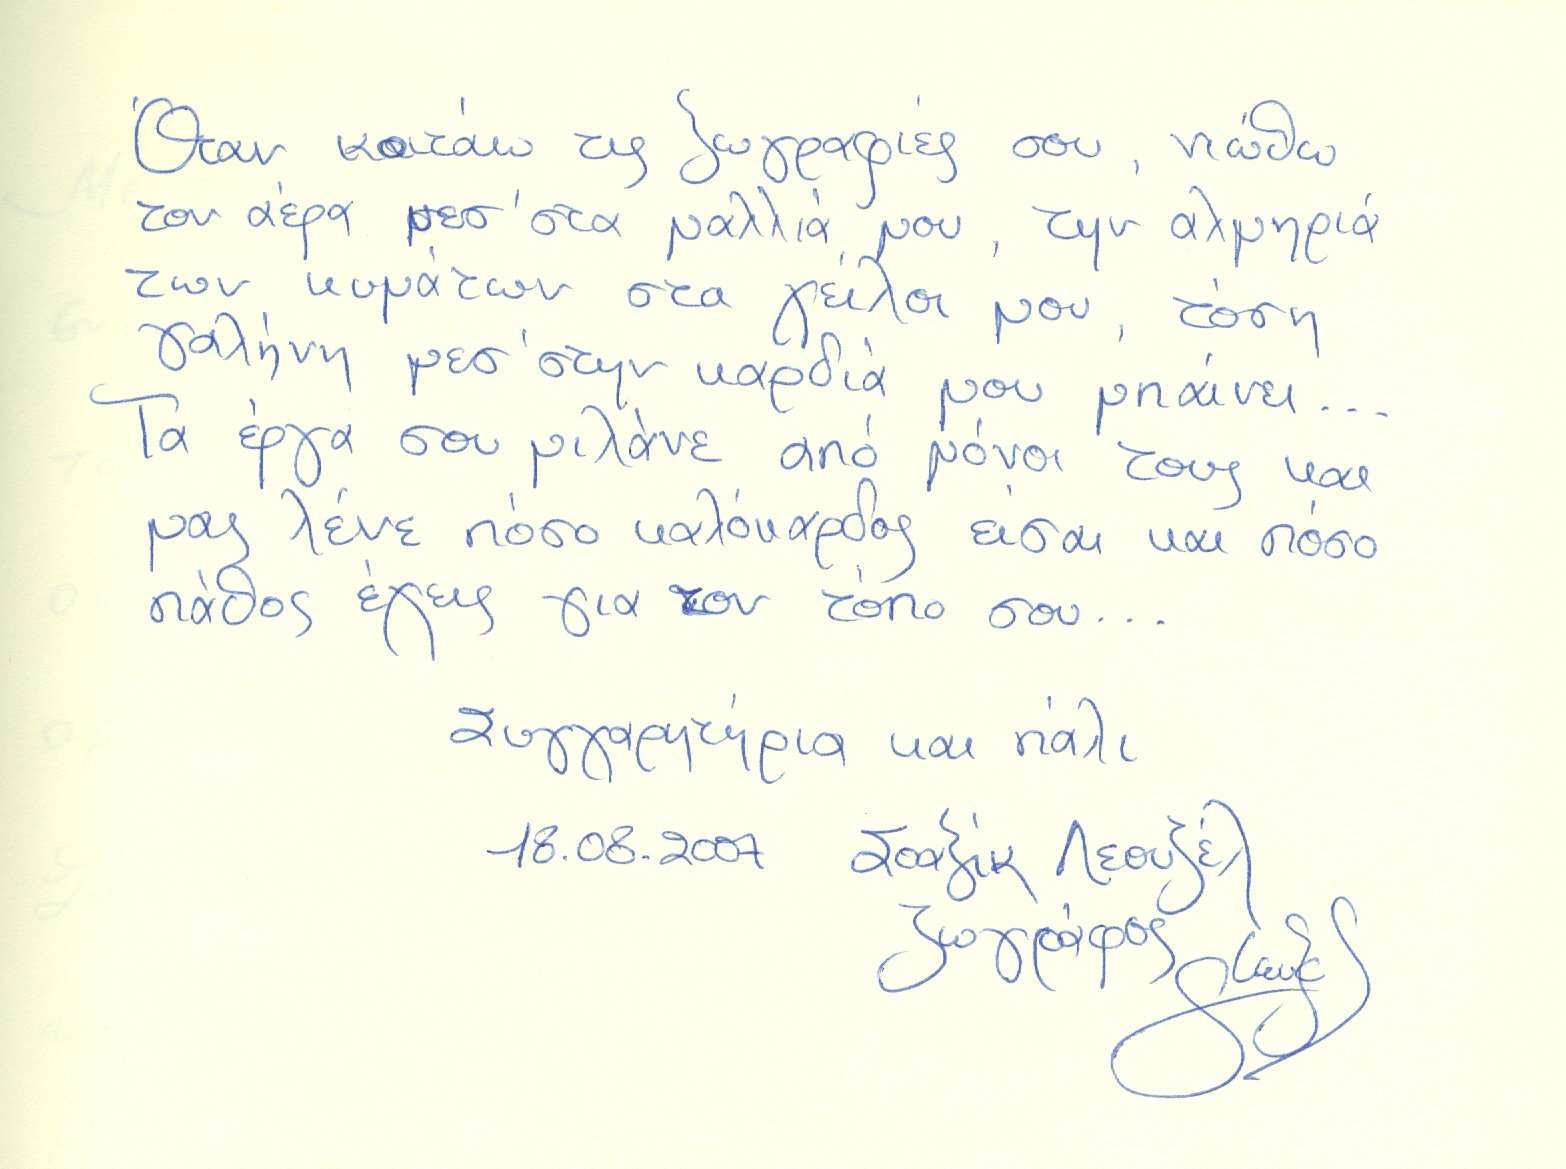 Όταν κοιτάω τις ζωγραφιές σου, νιώθω
τον αέρα μεσ' στα μαλλιά μου, την αλμηριά
των κυμάτων στα χείλοι μου, τόση
γαλήνη μεσ' στην καρδιά μου μπαίνει...
Τα έργα σου μιλάνε από μόνοι τους και
μας λένε πόσο καλόκαρδος είσαι και πόσο
πάθος έχεις για τον τόπο σου...
Συγχαρητήρια και πάλι
18.08.2007 Σοαζίκ Λεουζέλ
ζωγράφος